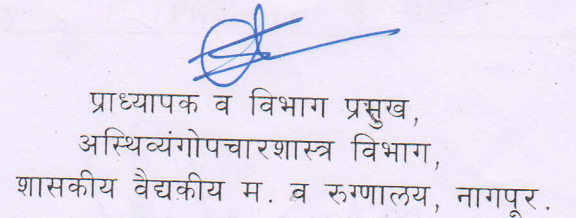 प्राध्यापक व विभाग प्रमुख,
अस्थिव्यंगोपचारशास्त्र विभाग,
शासकीय वैद्यकीय म. व रुग्णालय, नागपूर.